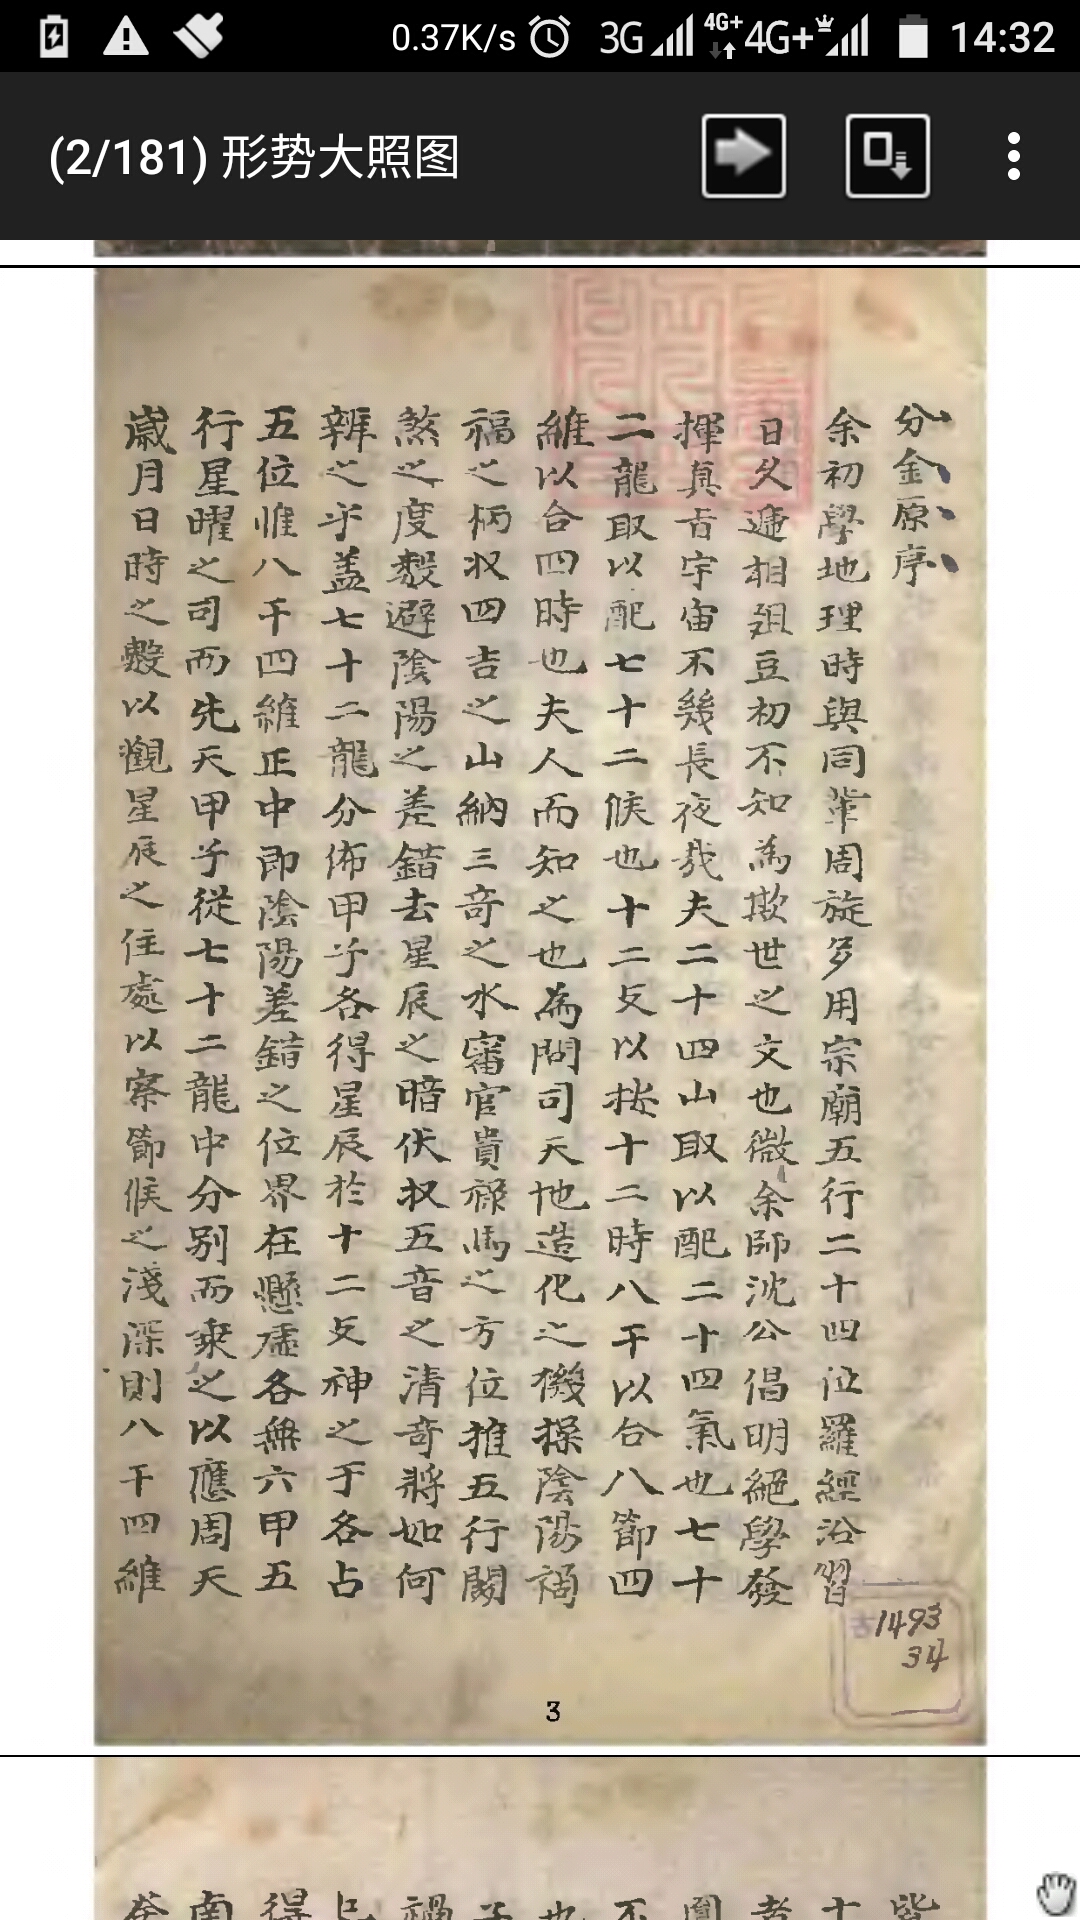 0.37K/s 3G 4G+ 4G+ 14:32
(2/181) 形势大照图
分金原序
余初學地理時與同軰周旋多用宗廟五行二十四位羅經沿習
日久遞相俎豆初不知為欺世之文也微余師沈公倡明絕學發
揮真旨宇宙不幾長夜哉夫二十四山取以配二十四氣也七十
二龍取以配七十二候也十二支以按十二時八干以合八節四
維以合四時也夫人而知之也為問司天地造化之機操陰陽禍
福之柄収四吉之山納三奇之水審官貴祿馬之方位推五行闢
煞之度數避陰陽之差錯去星辰之暗伏収五音之清奇將如何
辨之乎盖七十二龍分佈甲子各得星辰於十二支神之于各占
五位惟八干四維正中即陰陽差錯之位界在懸虛各無六甲五
行星曜之司而先天甲子從七十二龍中分別而乘之以應周天
歲月日時之數以觀星辰之住處以察節候之淺深則八干四維
古1493
34
3